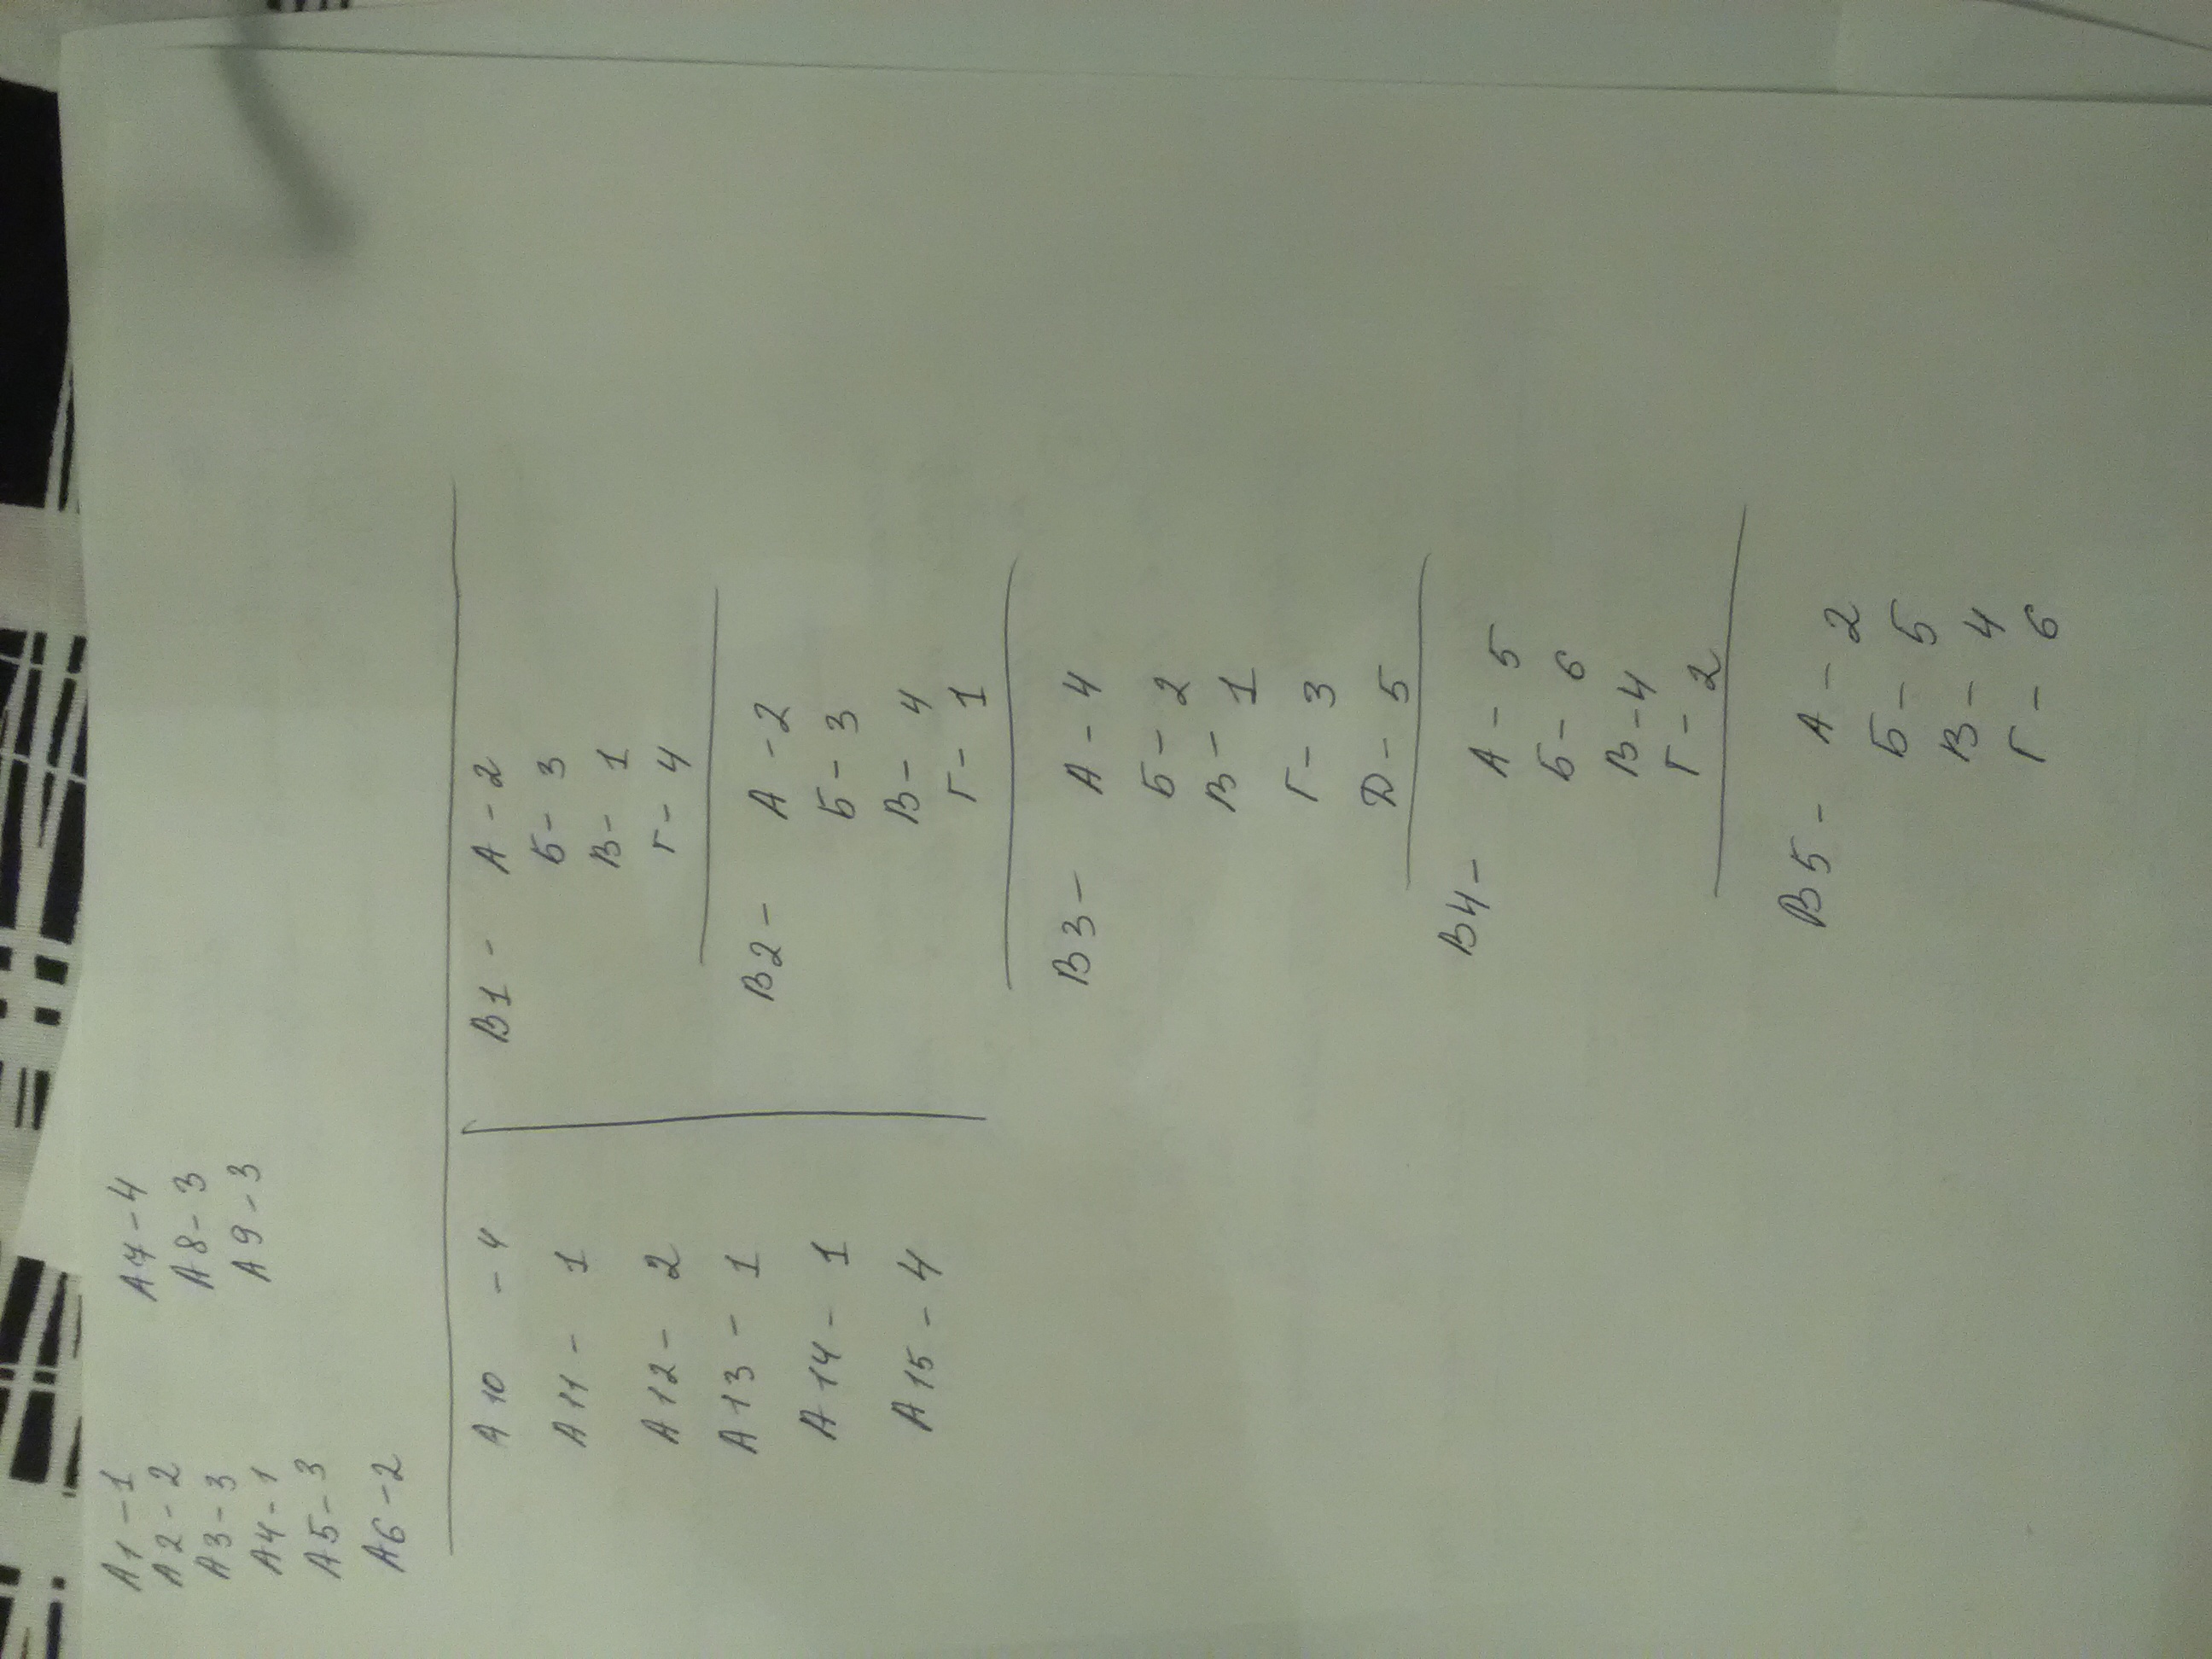 А1 - 1
А2 - 2
А3 - 3
А4 - 1
А5 - 3
А6 - 2
А7 - 4
А8 - 3
А9 - 3
А10 - 4
А11 - 1
А12 - 2
А13 - 1
А14 - 1
А15 - 4
В1 - А - 2
Б - 3
В - 1
Г - 4
В2 - А - 2
Б - 3
В - 4
Г - 1
В3 - А - 4
Б - 2
В - 1
Г - 3
Д - 5
В4 - А - 5
Б - 6
В - 4
Г - 2
В5 - А - 2
Б - 5
В - 4
Г - 6